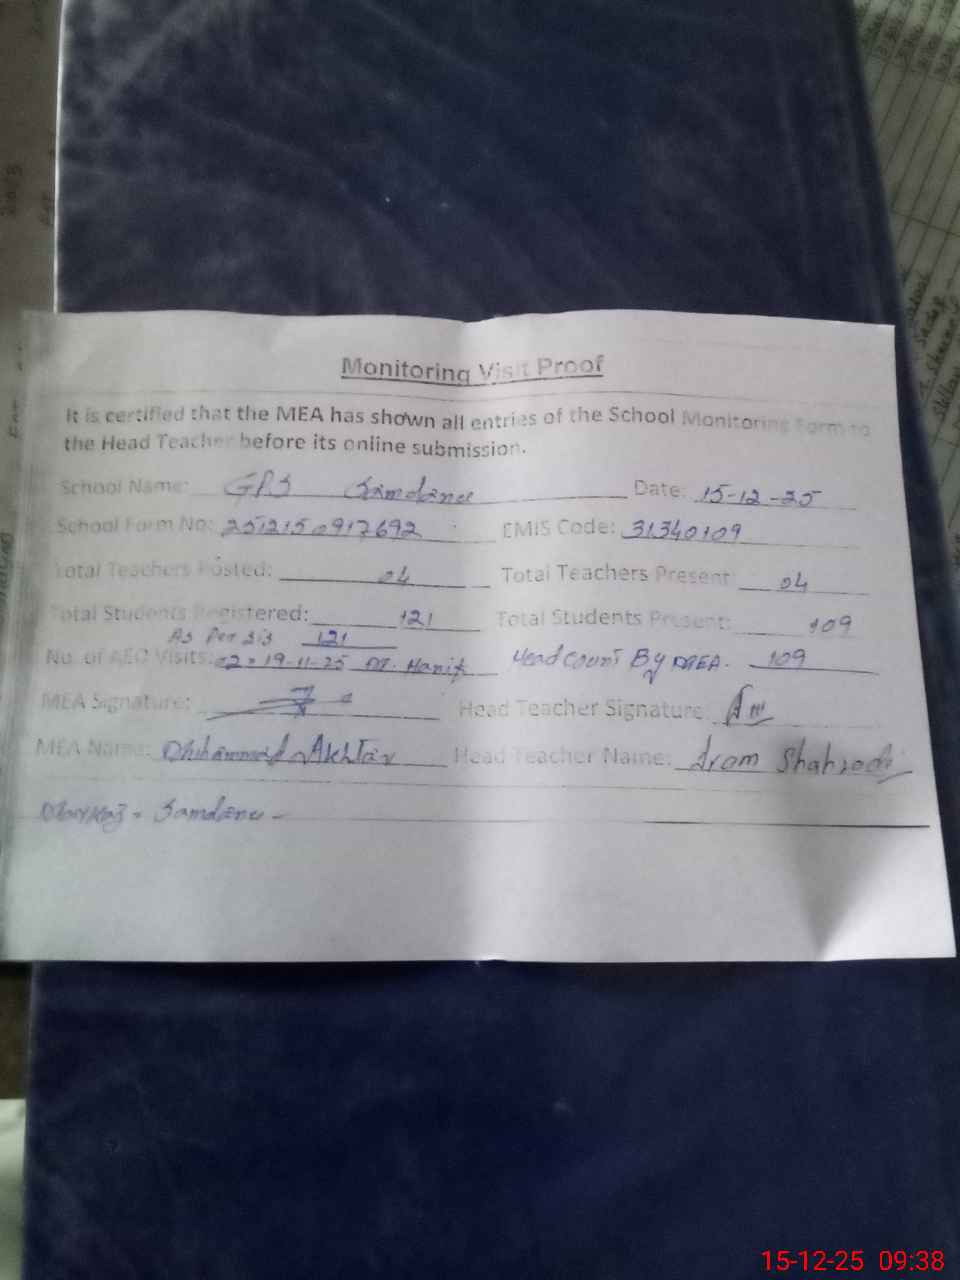 Monitoring Visit Proof
It is certified that the MEA has shown all entries of the School Monitoring Form to
the Head Teacher before its online submission.
School Name: GPS Samdana Date: 15-12-25
School Form No: 2512150917692 EMIS Code: 31340109
Total Teachers Posted: 04 Total Teachers Present: 04
Total Students Registered: 121 Total Students Present: 109
As Per Sis 121
No. of AEO Visits: 02 = 19-11-25 M. Hanif Head Count By MEA. 109
MEA Signature: Head Teacher Signature:
MEA Name: Muhammad Akhtar Head Teacher Name: Aram Shahzadi
Samdana
15-12-25 09:38